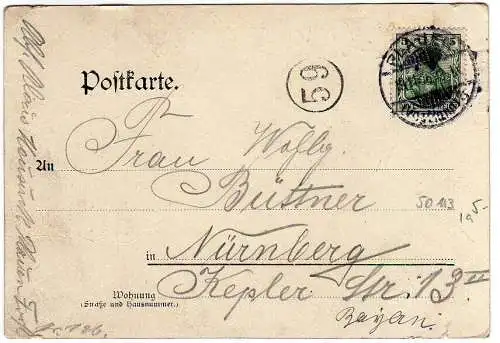 Postkarte.
59
PLAUEN
An Frau Wohlg.
Büttner
50 113
195.
in Nürnberg
Kepler Str. 13 II
Wohnung
(Straße und Hausnummer.)
Bayern.